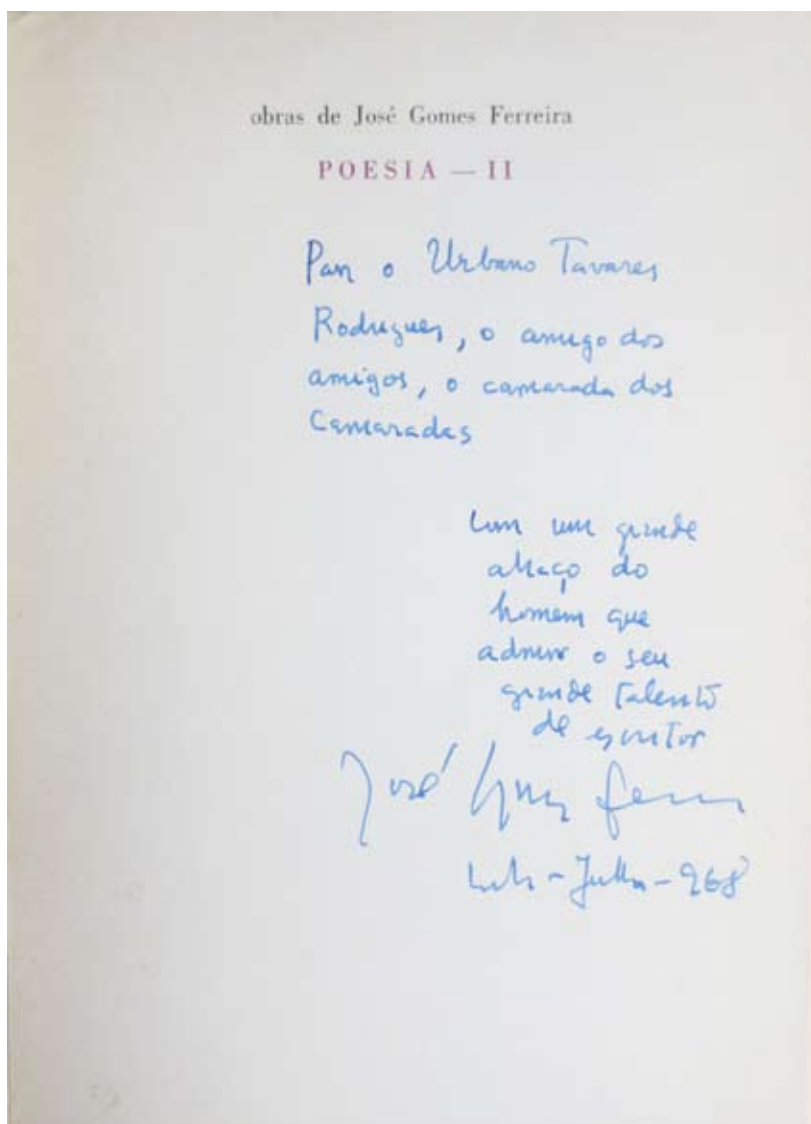 obras de José Gomes Ferreira
POESIA — II
Para o Urbano Tavares
Rodrigues, o amigo dos
amigos, o camarada dos
Camaradas
com um grande
abraço do
homem que
admira o seu
grande talento
de escritor
José Gomes Ferreira
Julho - 968